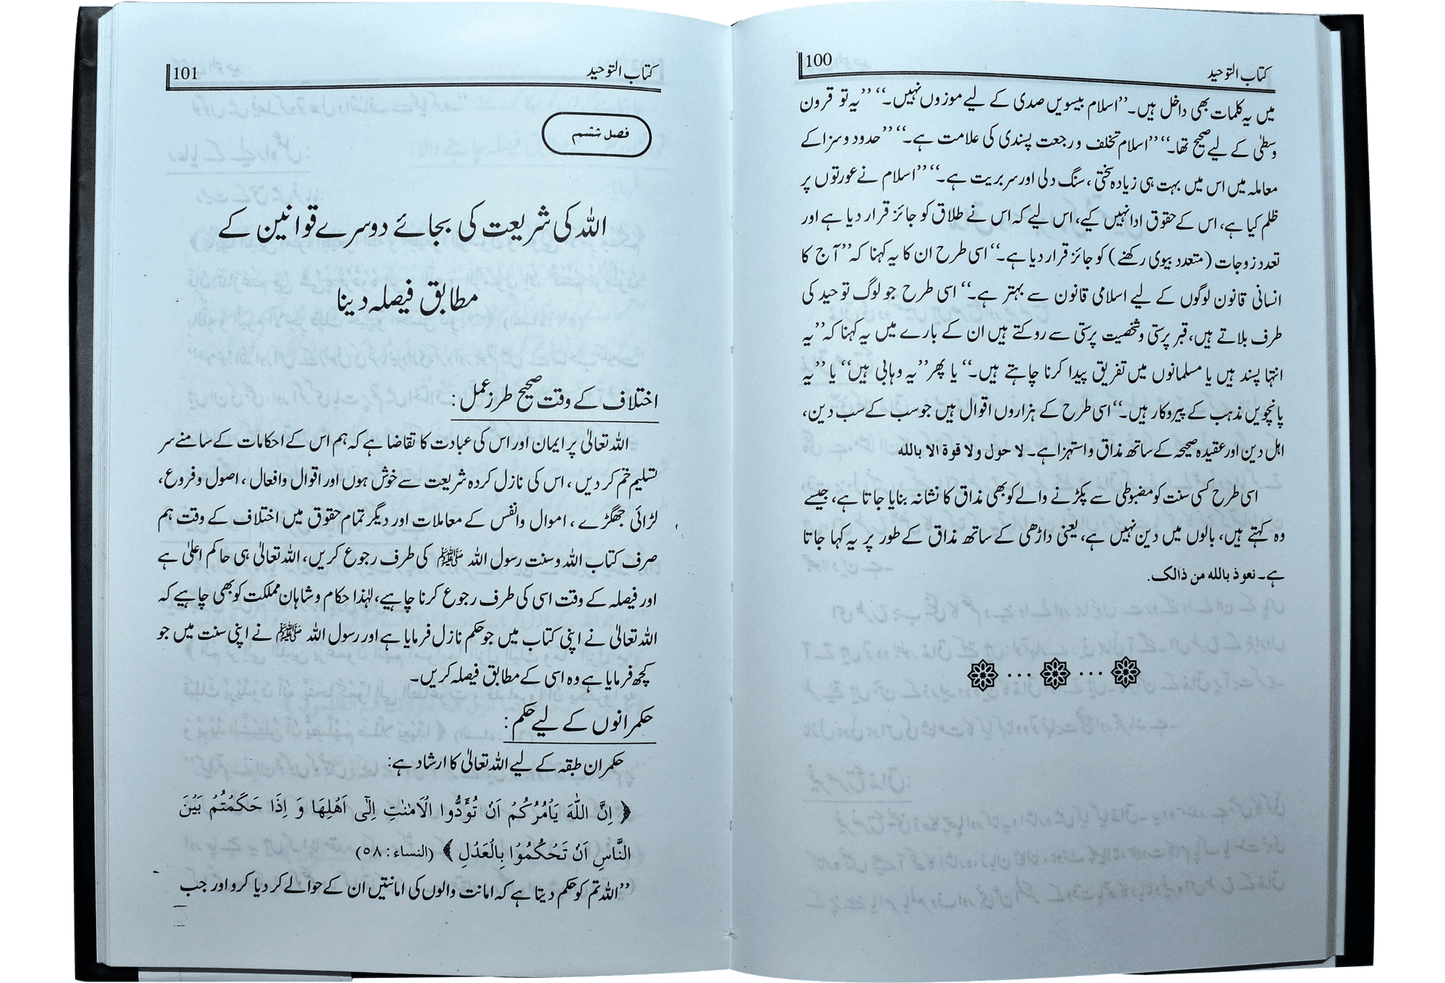 كتاب التوحيد 100
میں یہ کلمات بھی داخل ہیں۔ ’’اسلام بیسویں صدی کے لیے موزوں نہیں۔‘‘ ’’یہ تو قرون
وسطیٰ کے لیے صحیح تھا۔‘‘ ’’اسلام تخلف و رجعت پسندی کی علامت ہے۔‘‘ ’’حدود و سزا کے
معاملہ میں اس میں بہت ہی زیادہ سختی، سنگ دلی اور سربریت ہے۔‘‘ ’’اسلام نے عورتوں پر
ظلم کیا ہے، اس کے حقوق ادا نہیں کیے، اس لیے کہ اس نے طلاق کو جائز قرار دیا ہے اور
تعدد زوجات (متعدد بیوی رکھنے) کو جائز قرار دیا ہے۔‘‘ اسی طرح ان کا یہ کہنا کہ ’’آج کا
انسانی قانون لوگوں کے لیے اسلامی قانون سے بہتر ہے۔‘‘ اسی طرح جو لوگ توحید کی
طرف بلاتے ہیں، قبر پرستی و شخصیت پرستی سے روکتے ہیں ان کے بارے میں یہ کہنا کہ ’’یہ
انتہا پسند ہیں یا مسلمانوں میں تفریق پیدا کرنا چاہتے ہیں۔‘‘ یا پھر ’’یہ وہابی ہیں‘‘ یا ’’یہ
پانچویں مذہب کے پیروکار ہیں۔‘‘ اسی طرح کے ہزاروں اقوال ہیں جو سب کے سب دین،
اہل دین اور عقیدہ صحیحہ کے ساتھ مذاق و استہزا ہے۔ لا حول ولا قوة الا بالله
اسی طرح کسی سنت کو مضبوطی سے پکڑنے والے کو بھی مذاق کا نشانہ بنایا جاتا ہے، جیسے
وہ کہتے ہیں، بالوں میں دین نہیں ہے، یعنی داڑھی کے ساتھ مذاق کے طور پر یہ کہا جاتا
ہے۔ نعوذ بالله من ذالك.
كتاب التوحيد 101
فصل ششم
اللہ کی شریعت کی بجائے دوسرے قوانین کے
مطابق فیصلہ دینا
اختلاف کے وقت صحیح طرز عمل:
اللہ تعالیٰ پر ایمان اور اس کی عبادت کا تقاضا ہے کہ ہم اس کے احکامات کے سامنے سر
تسلیم خم کر دیں، اس کی نازل کردہ شریعت سے خوش ہوں اور اقوال و افعال، اصول و فروع،
لڑائی جھگڑے، اموال و انفس کے معاملات اور دیگر تمام حقوق میں اختلاف کے وقت ہم
صرف کتاب اللہ و سنت رسول اللہ ﷺ کی طرف رجوع کریں، اللہ تعالیٰ ہی حاکم اعلیٰ ہے
اور فیصلہ کے وقت اسی کی طرف رجوع کرنا چاہیے، لہٰذا حکام و شاہان مملکت کو بھی چاہیے کہ
اللہ تعالیٰ نے اپنی کتاب میں جو حکم نازل فرمایا ہے اور رسول اللہ ﷺ نے اپنی سنت میں جو
کچھ فرمایا ہے وہ اسی کے مطابق فیصلہ کریں۔
حکمرانوں کے لیے حکم:
حکمران طبقہ کے لیے اللہ تعالیٰ کا ارشاد ہے:
﴿ اِنَّ اللّٰهَ يَاْمُرُكُمْ اَنْ تُؤَدُّوا الْاَمٰنٰتِ اِلٰٓى اَهْلِهَا وَ اِذَا حَكَمْتُمْ بَيْنَ
النَّاسِ اَنْ تَحْكُمُوْا بِالْعَدْلِ ﴾ (النساء: ٥٨)
’’اللہ تم کو حکم دیتا ہے کہ امانت والوں کی امانتیں ان کے حوالے کر دیا کرو اور جب